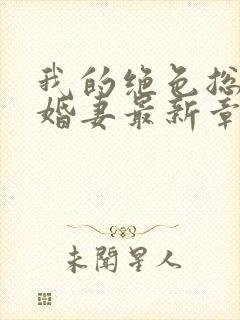 我的绝色总
婚妻最新章
未闻星人